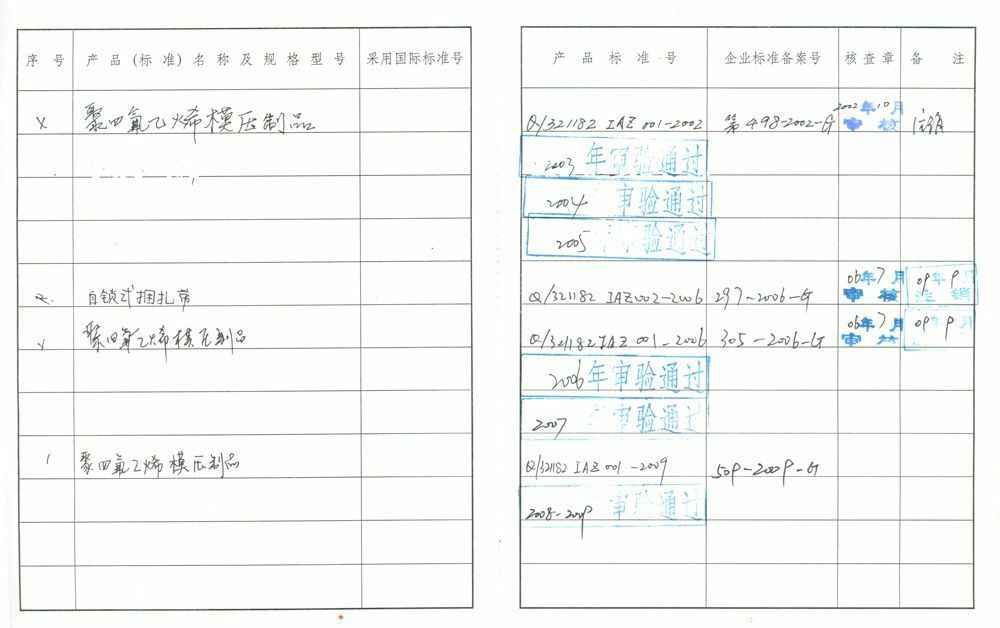 序号 产品(标准)名称及规格型号 采用国际标准号 产品标准号 企业标准备案号 核查章 备注
X 聚四氟乙烯模压制品 Q/321182 IAZ 001-2002 第498-2002-G 2002年10月 审核 注销
2003年审验通过
2004 审验通过
2005 审验通过
自锁式捆扎带 Q/321182 IAZ002-2006 297-2006-G 06年7月 审核 09年9月 注销
聚四氟乙烯模压制品 Q/321182 IAZ 001-2006 305-2006-G 06年7月 审核 09年9月
2006年审验通过
2007 审验通过
1 聚四氟乙烯模压制品 Q/321182 IAZ 001-2009 509-2009-G
2008-2009 审验通过